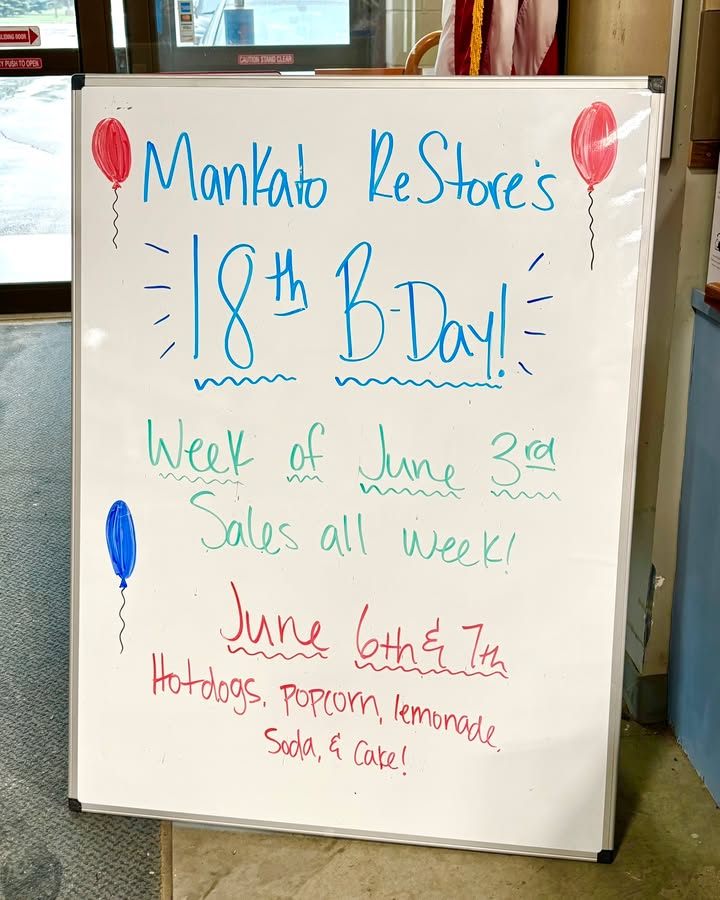 SLIDING DOOR
PUSH TO OPEN
CAUTION STAND CLEAR
Mankato ReStore's
18th B-Day!
Week of June 3rd
Sales all week!
June 6th & 7th
Hotdogs, popcorn, lemonade,
Soda, & Cake!